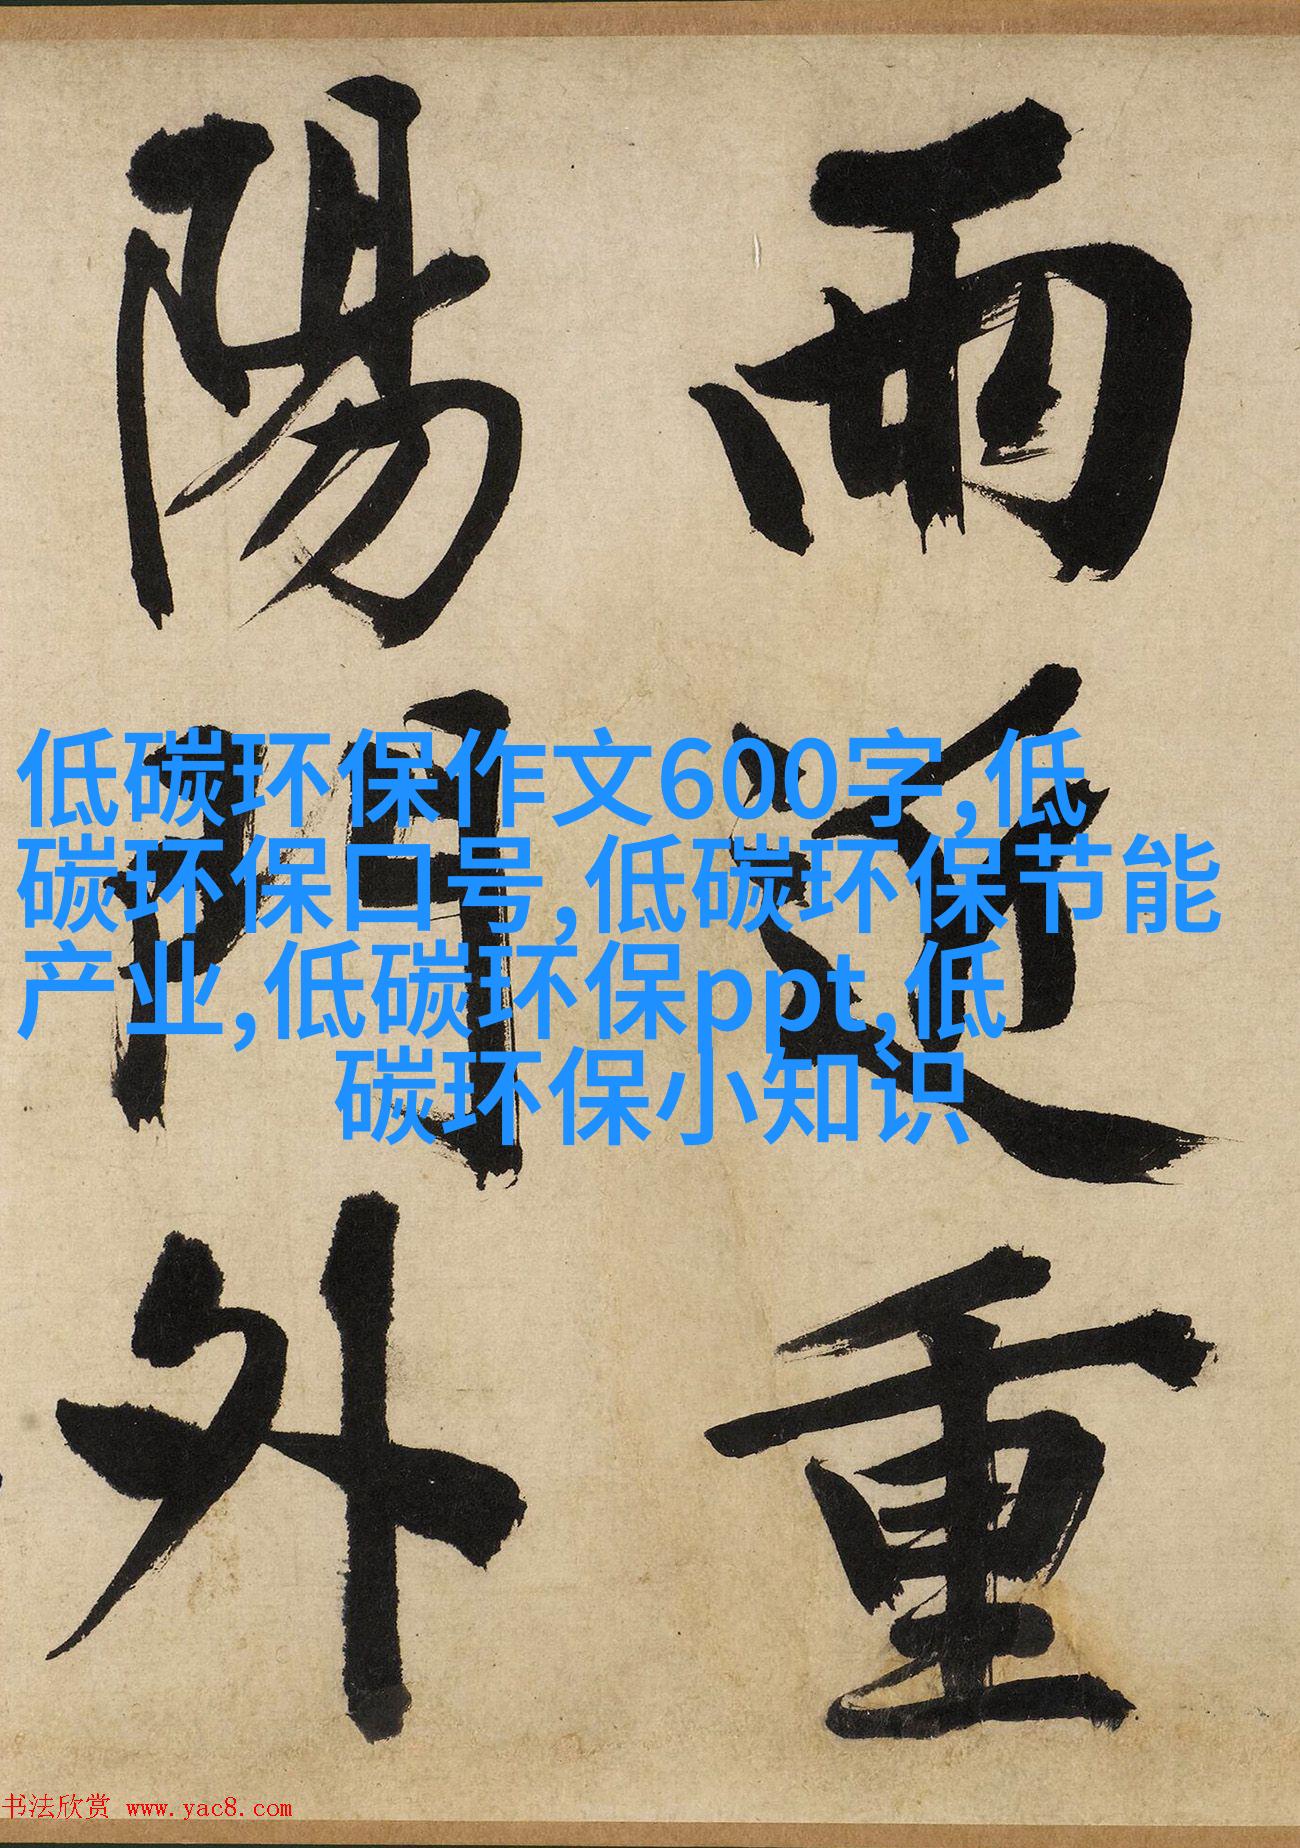 雨近重
陽門外
低碳环保作文600字,低
碳环保口号,低碳环保节能
产业,低碳环保ppt,低
碳环保小知识
书法欣赏 www.yac8.com